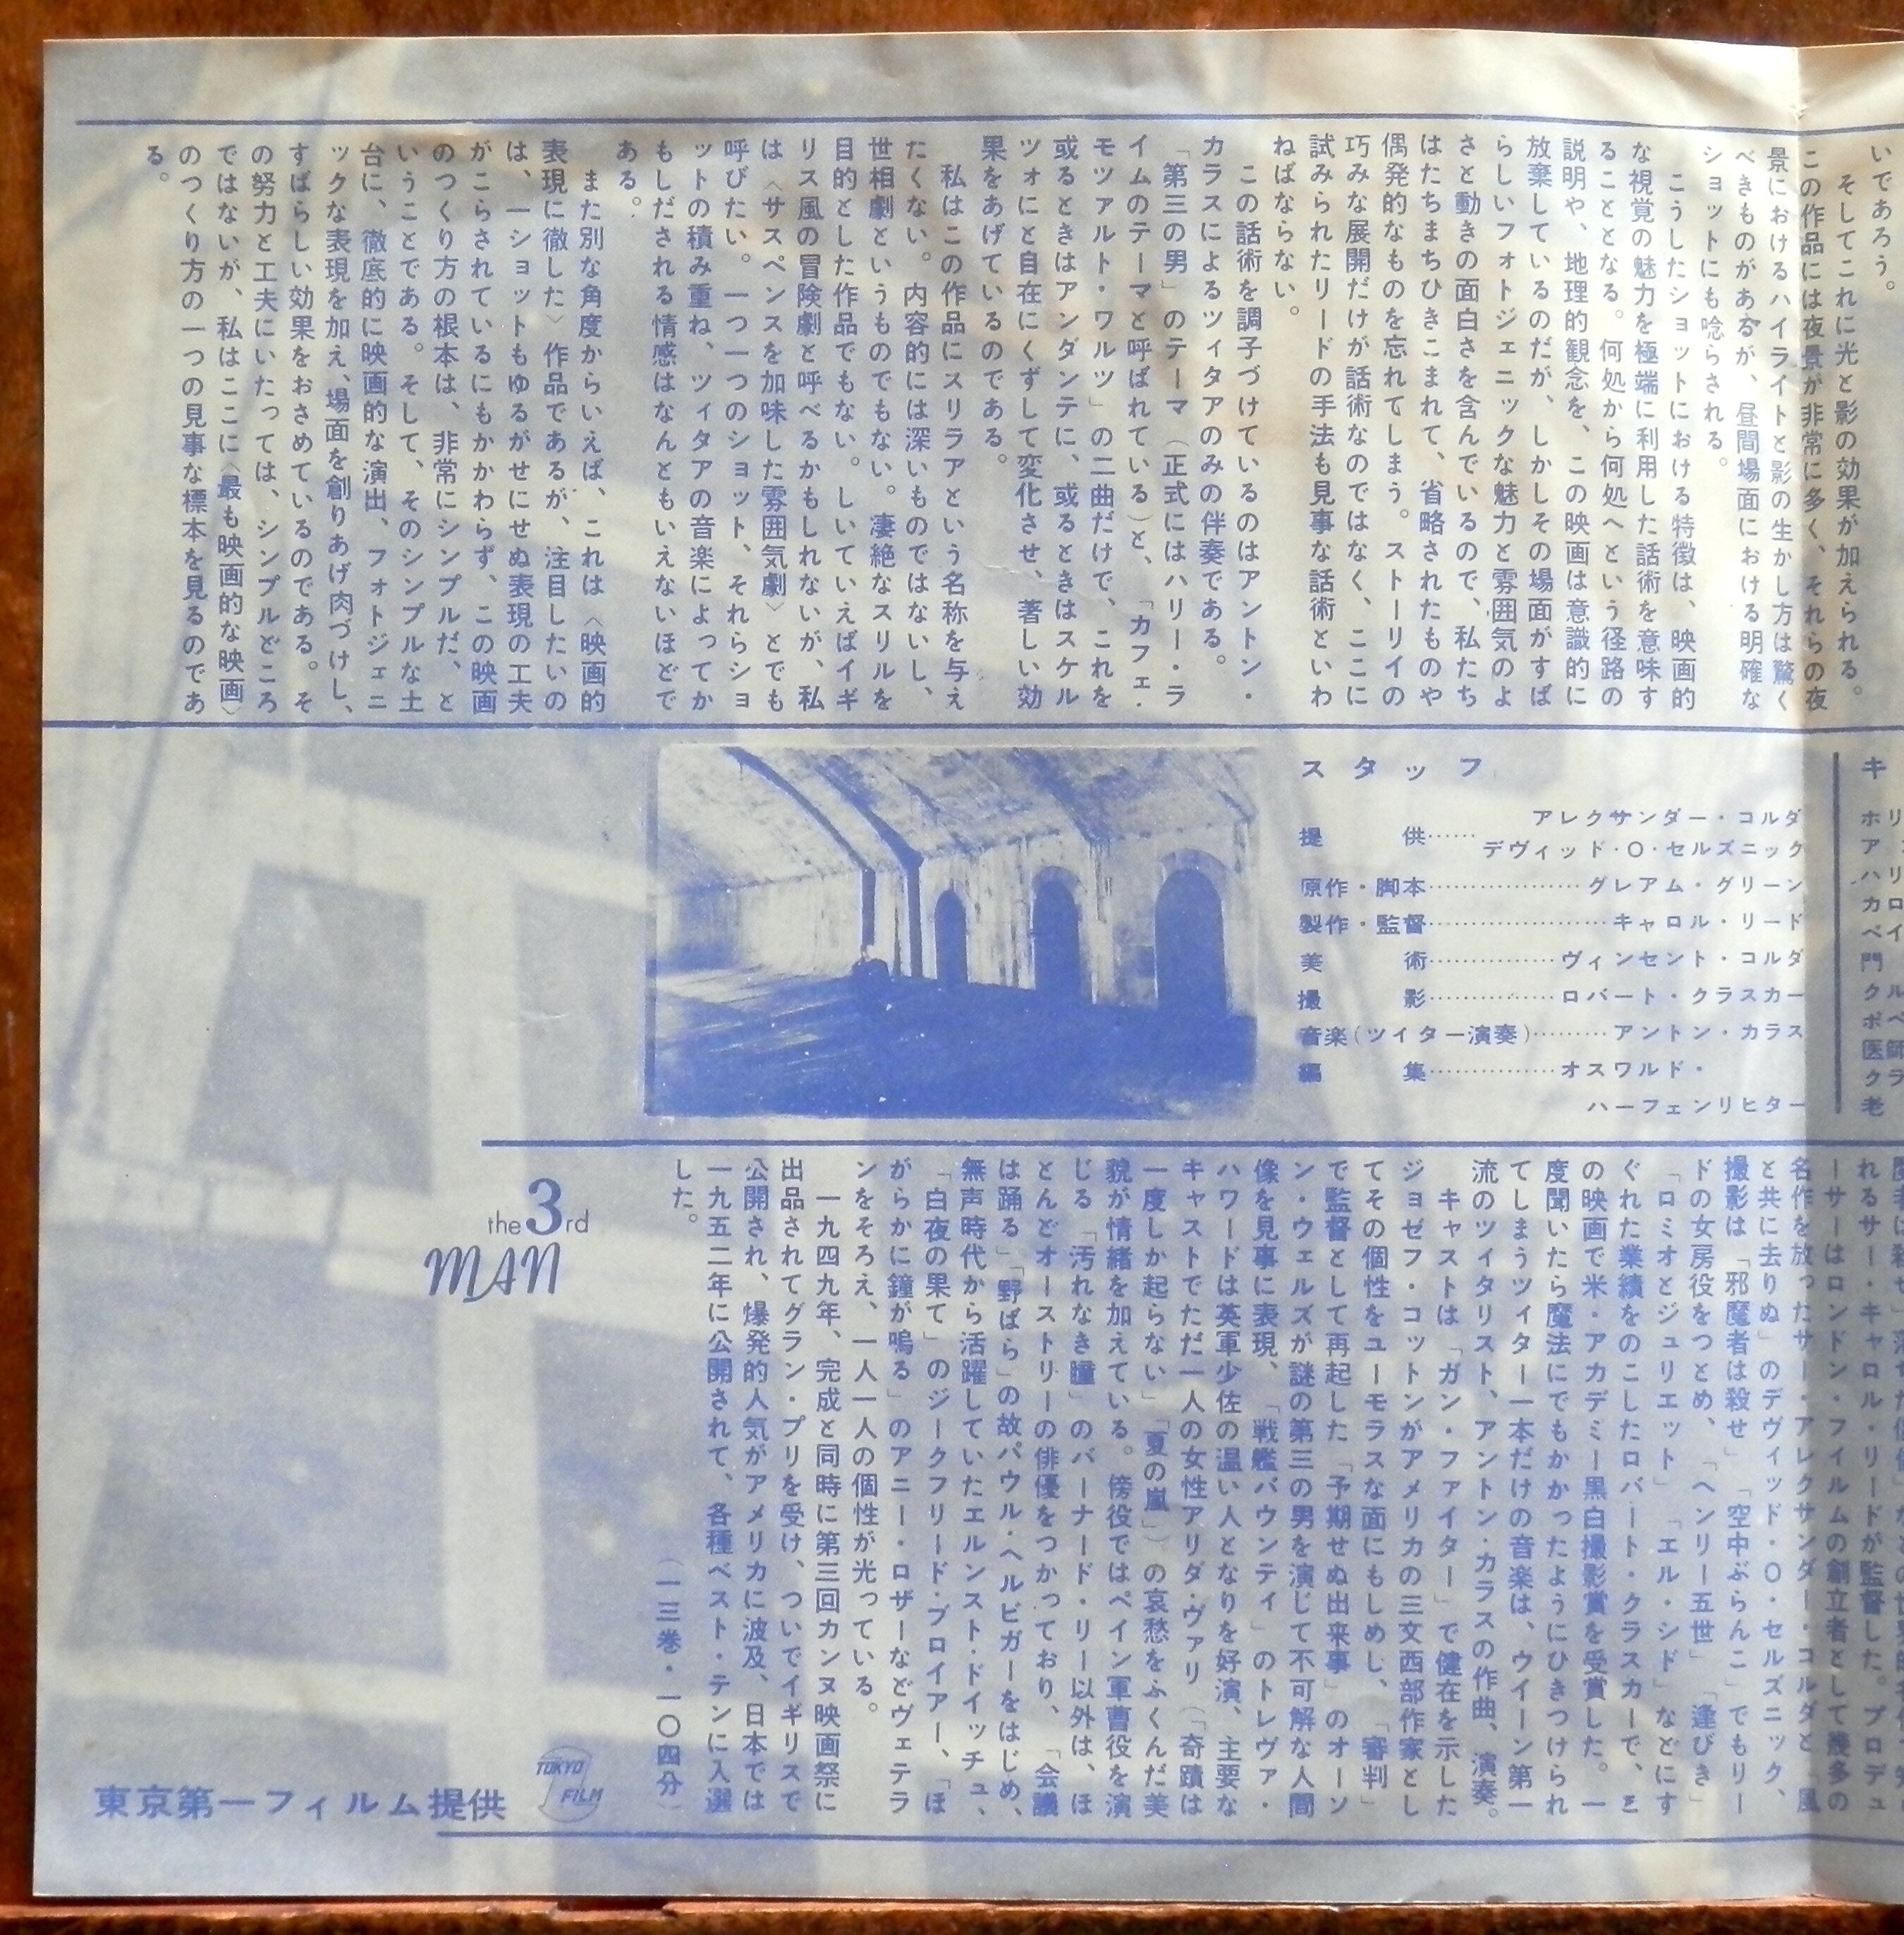 いであろう。
そしてこれに光と影の効果が加えられる。
この作品には夜景が非常に多く、それらの夜
景におけるハイライトと影の生かし方は驚く
べきものがあるが、昼間場面における明確な
ショットにも唸らされる。
こうしたショットにおける特徴は、映画的
な視覚の魅力を極端に利用した話術を意味す
ることとなる。何処から何処へという径路の
説明や、地理的観念を、この映画は意識的に
放棄しているのだが、しかしその場面がすば
らしいフォトジェニックな魅力と雰囲気のよ
さと動きの面白さを含んでいるので、私たち
はたちまちひきこまれて、省略されたものや
偶発的なものを忘れてしまう。ストーリイの
巧みな展開だけが話術なのではなく、ここに
試みられたリードの手法も見事な話術といわ
ねばならない。
この話術を調子づけているのはアントン・
カラスによるツィタアのみの伴奏である。
「第三の男」のテーマ（正式にはハリー・ラ
イムのテーマと呼ばれている）と、「カフェ・
モツァルト・ワルツ」の二曲だけで、これを
或るときはアンダンテに、或るときはスケル
ツォにと自在にくずして変化させ、著しい効
果をあげているのである。
私はこの作品にスリラアという名称を与え
たくない。内容的には深いものではないし、
世相劇というものでもない。凄絶なスリルを
目的とした作品でもない。しいていえばイギ
リス風の冒険劇と呼べるかもしれないが、私
は〈サスペンスを加味した雰囲気劇〉とでも
呼びたい。一つ一つのショット、それらショ
ットの積み重ね、ツィタアの音楽によってか
もしだされる情感はなんともいえないほどで
ある。
また別な角度からいえば、これは〈映画的
表現に徹した〉作品であるが、注目したいの
は、一ショットもゆるがせにせぬ表現の工夫
がこらされているにもかかわらず、この映画
のつくり方の根本は、非常にシンプルだ、と
いうことである。そして、そのシンプルな土
台に、徹底的に映画的な演出、フォトジェニ
ックな表現を加え、場面を創りあげ肉づけし、
すばらしい効果をおさめているのである。そ
の努力と工夫にいたっては、シンプルどころ
ではないが、私はここに〈最も映画的な映画〉
のつくり方の一つの見事な標本を見るのであ
る。
スタッフ
提供……アレクサンダー・コルダ
デヴィッド・O・セルズニック
原作・脚本………………グレアム・グリーン
製作・監督…………………キャロル・リード
美術……………ヴィンセント・コルダ
撮影……………ロバート・クラスカー
音楽(ツイター演奏)………アントン・カラス
編集……………オスワルド・
ハーフェンリヒター
キ
ホリ
ア
ハリ
カロ
ペイ
門
クル
ポペ
医師
クラ
老
れるサー・キャロル・リードが監督した。プロデュ
ーサーはロンドン・フイルムの創立者として幾多の
名作を放ったサー・アレクサンダー・コルダと「風
と共に去りぬ」のデヴィッド・O・セルズニック、
撮影は「邪魔者は殺せ」「空中ぶらんこ」でもリー
ドの女房役をつとめ、「ヘンリー五世」「逢びき」
「ロミオとジュリエット」「エル・シド」などにす
ぐれた業績をのこしたロバート・クラスカーで、こ
の映画で米・アカデミー黒白撮影賞を受賞した。一
度聞いたら魔法にでもかかったようにひきつけられ
てしまうツイター一本だけの音楽は、ウイーン第一
流のツイタリスト、アントン・カラスの作曲、演奏。
キャストは「ガン・ファイター」で健在を示した
ジョゼフ・コットンがアメリカの三文西部作家とし
てその個性をユーモラスな面にもしめし、「審判」
で監督として再起した「予期せぬ出来事」のオーソ
ン・ウェルズが謎の第三の男を演じて不可解な人間
像を見事に表現、「戦艦バウンティ」のトレヴァ・
ハワードは英軍少佐の温い人となりを好演、主要な
キャストでただ一人の女性アリダ・ヴァリ（「奇蹟は
一度しか起らない」「夏の嵐」）の哀愁をふくんだ美
貌が情緒を加えている。傍役ではペイン軍曹役を演
じる「汚れなき瞳」のバーナード・リー以外は、ほ
とんどオーストリーの俳優をつかっており、「会議
は踊る」「野ばら」の故パウル・ヘルビガーをはじめ、
無声時代から活躍していたエルンスト・ドイッチュ、
「白夜の果て」のジークフリード・ブロイアー、「ほ
がらかに鐘が鳴る」のアニー・ロザーなどヴェテラ
ンをそろえ、一人一人の個性が光っている。
一九四九年、完成と同時に第三回カンヌ映画祭に
出品されてグラン・プリを受け、ついでイギリスで
公開され、爆発的人気がアメリカに波及、日本では
一九五二年に公開されて、各種ベスト・テンに入選
した。
（一三巻・一〇四分）
the 3rd
MAN
東京第一フィルム提供
TOKYO
FILM